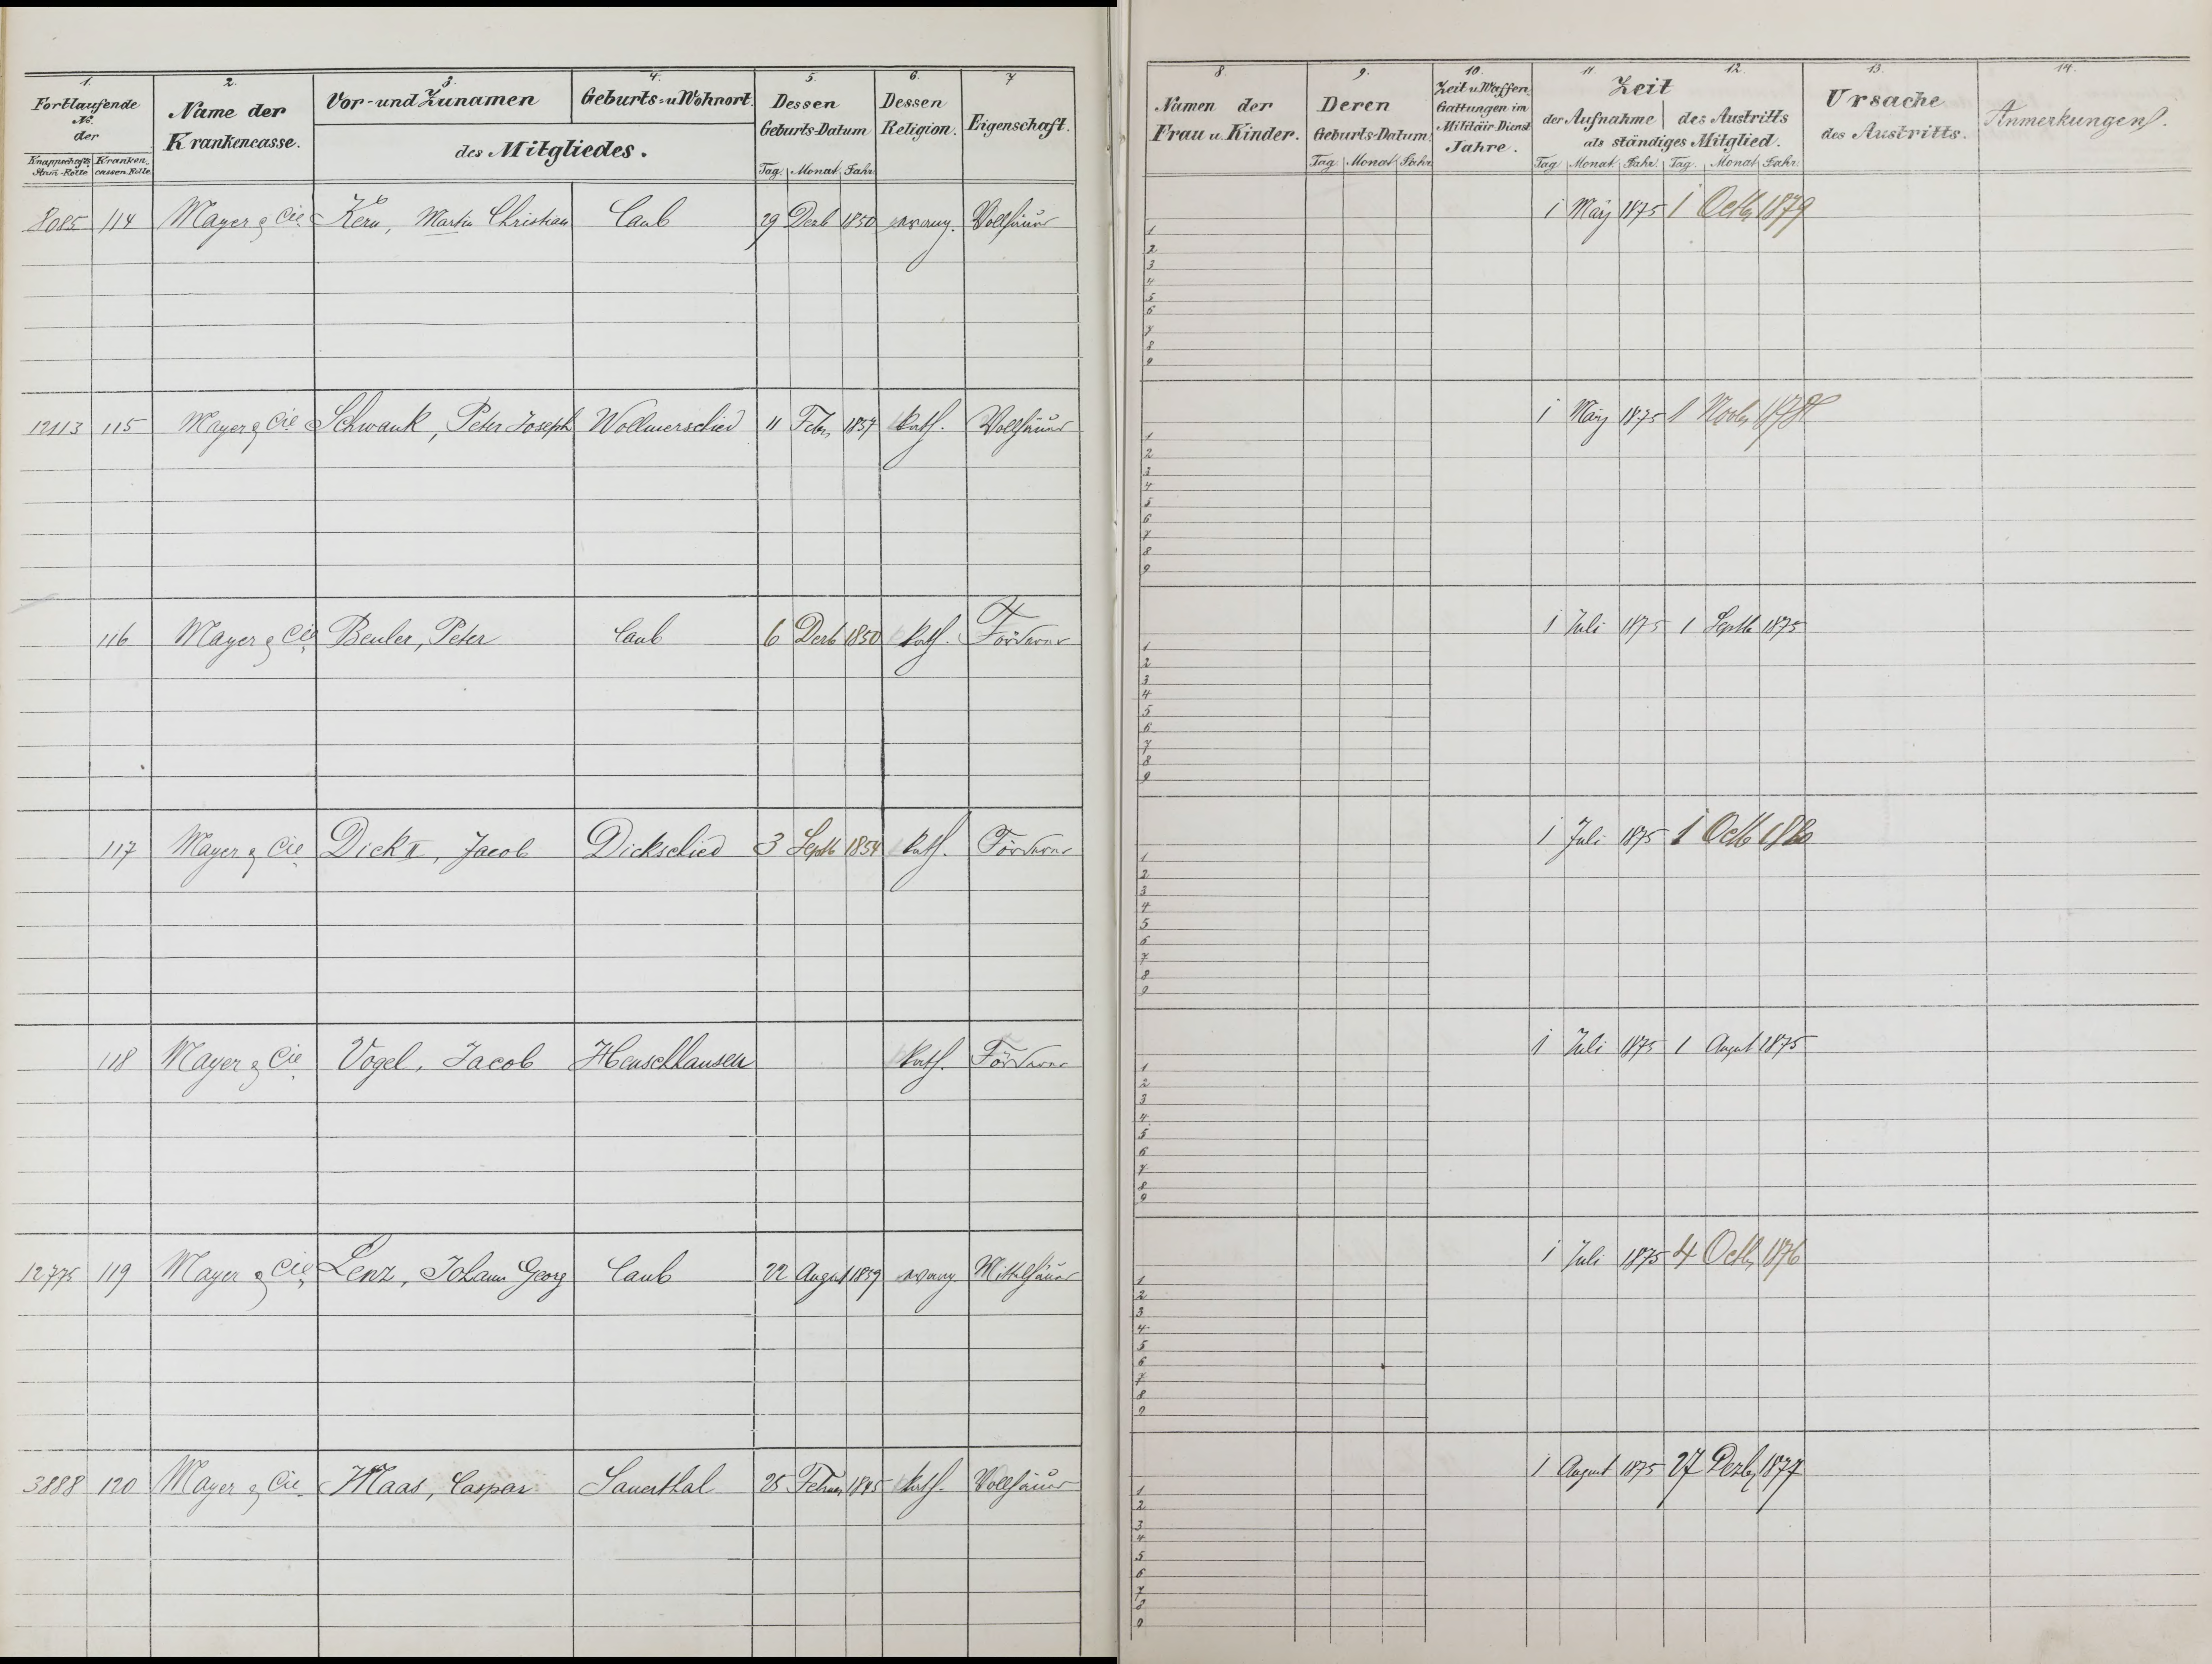 1. 2. 3. 4. 5. 6. 7
Fortlaufende No. der
Knappschafts Stam-Rolle Krankencassen Rolle
Name der Krankencasse.
Vor- und Zunamen Geburts- u Wohnort.
des Mitgliedes.
Dessen Geburts-Datum
Tag. Monat. Jahr
Dessen Religion.
Eigenschaft.
8085 114 Mayer & Cie Kern, Martin Christian Caub 29 Dezb 1850 evang. Vollhäuer
12113 115 Mayer & Cie Schwank, Peter Joseph Wollmerschied 11 Febr 1857 kath. Vollhäuer
116 Mayer & Cie Beuler, Peter Caub 6 Dezb 1850 kath. Förderer
117 Mayer & Cie Dick II, Jacob Dickschied 3 Septb 1854 kath. Förderer
118 Mayer & Cie Vogel, Jacob Henschhausen kath. Förderer
12775 119 Mayer & Cie Lenz, Johann Georg Caub 22 August 1859 evang Mittelhäuer
3888 120 Mayer & Cie Maas, Caspar Sauerthal 25 Februar 1845 kath. Vollhäuer
8. 9. 10. 11. 12. 13. 14.
Namen der Frau u. Kinder.
Deren Geburts-Datum
Tag. Monat Jahr.
Zeit u. Waffen Gattungen im Militäir-Dienst Jahre.
Zeit
der Aufnahme des Austritts
als ständiges Mitglied.
Tag Monat. Jahr. Tag. Monat Jahr.
Ursache des Austritts.
Anmerkungen.
1 März 1875 1 Octb 1879
1
2
3
4
5
6
7
8
9
1 März 1875 1 Novb
1
2
3
4
5
6
7
8
9
1 Juli 1875 1 Septb 1875
1
2
3
4
5
6
7
8
9
1 Juli 1875 1 Octb 1880
1
2
3
4
5
6
7
8
9
1 Juli 1875 1 August 1875
1
2
3
4
5
6
7
8
9
1 Juli 1875 4 Octb 1876
1
2
3
4
5
6
7
8
9
1 August 1875 27 Dezb 1877
1
2
3
4
5
6
7
8
9